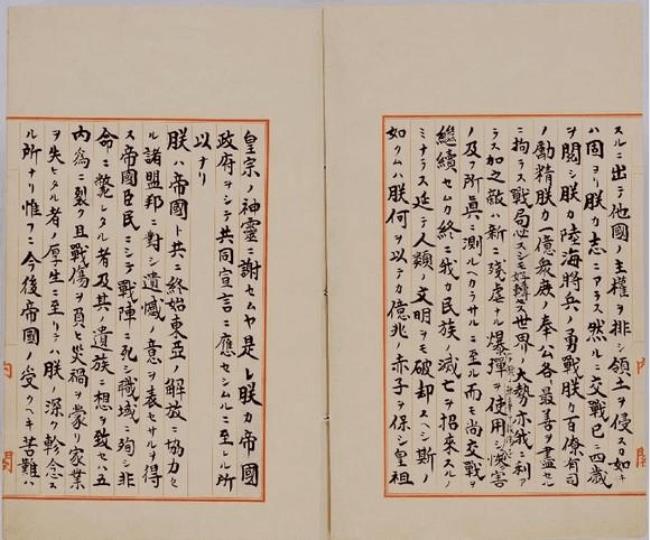 スルニ出テ他國ノ主權ヲ排シ領土ヲ侵スカ如キ
ハ固ヨリ朕カ志ニアラス然ルニ交戰已ニ四歳
ヲ閲シ朕カ陸海將兵ノ勇戰朕カ百僚有司
ノ勵精朕カ一億衆庶ノ奉公各〻最善ヲ盡セル
ニ拘ラス戰局必スシモ好轉セス世界ノ大勢亦我ニ利ア
ラス加之敵ハ新ニ殘虐ナル爆彈ヲ使用シ慘害
ノ及フ所眞ニ測ルヘカラサルニ至ル而モ尚交戰ヲ
繼續セムカ終ニ我カ民族ノ滅亡ヲ招來スルノ
ミナラス延テ人類ノ文明ヲモ破却スヘシ斯ノ
如クムハ朕何ヲ以テカ億兆ノ赤子ヲ保シ皇祖
皇宗ノ神靈ニ謝セムヤ是レ朕カ帝國
政府ヲシテ共同宣言ニ應セシムルニ至レル所
以ナリ
朕ハ帝國ト共ニ終始東亞ノ解放ニ協力セ
ル諸盟邦ニ對シ遺憾ノ意ヲ表セサルヲ得
ス帝國臣民ニシテ戰陣ニ死シ職域ニ殉シ非
命ニ斃レタル者及其ノ遺族ニ想ヲ致セハ五
内爲ニ裂ク且戰傷ヲ負ヒ災禍ヲ蒙リ家業
ヲ失ヒタル者ノ厚生ニ至リテハ朕ノ深ク軫念ス
ル所ナリ惟フニ今後帝國ノ受クヘキ苦難ハ
内閣